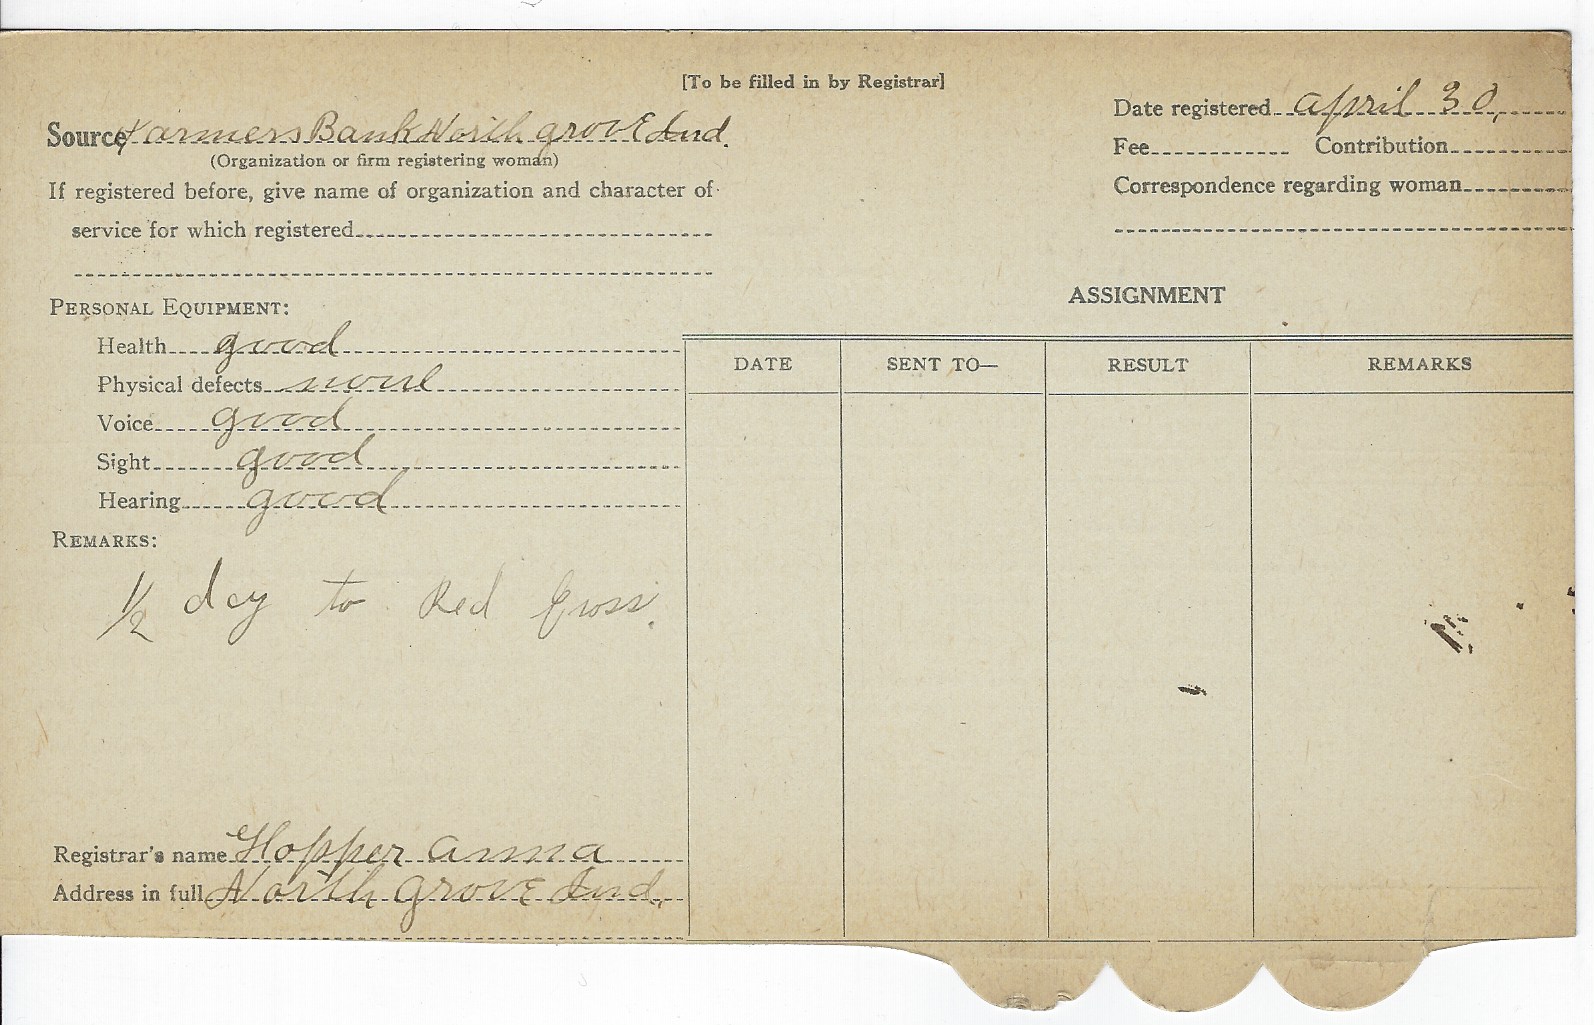 [To be filled in by Registrar]
Source Farmers Bank North grove Ind.
(Organization or firm registering woman)
If registered before, give name of organization and character of
service for which registered
Date registered april 30,
Fee Contribution
Correspondence regarding woman
PERSONAL EQUIPMENT:
Health good
Physical defects none
Voice good
Sight good
Hearing good
REMARKS:
1/2 day to Red Cross.
ASSIGNMENT
DATE SENT TO— RESULT REMARKS
Registrar's name Hopper anna
Address in full North grove Ind.